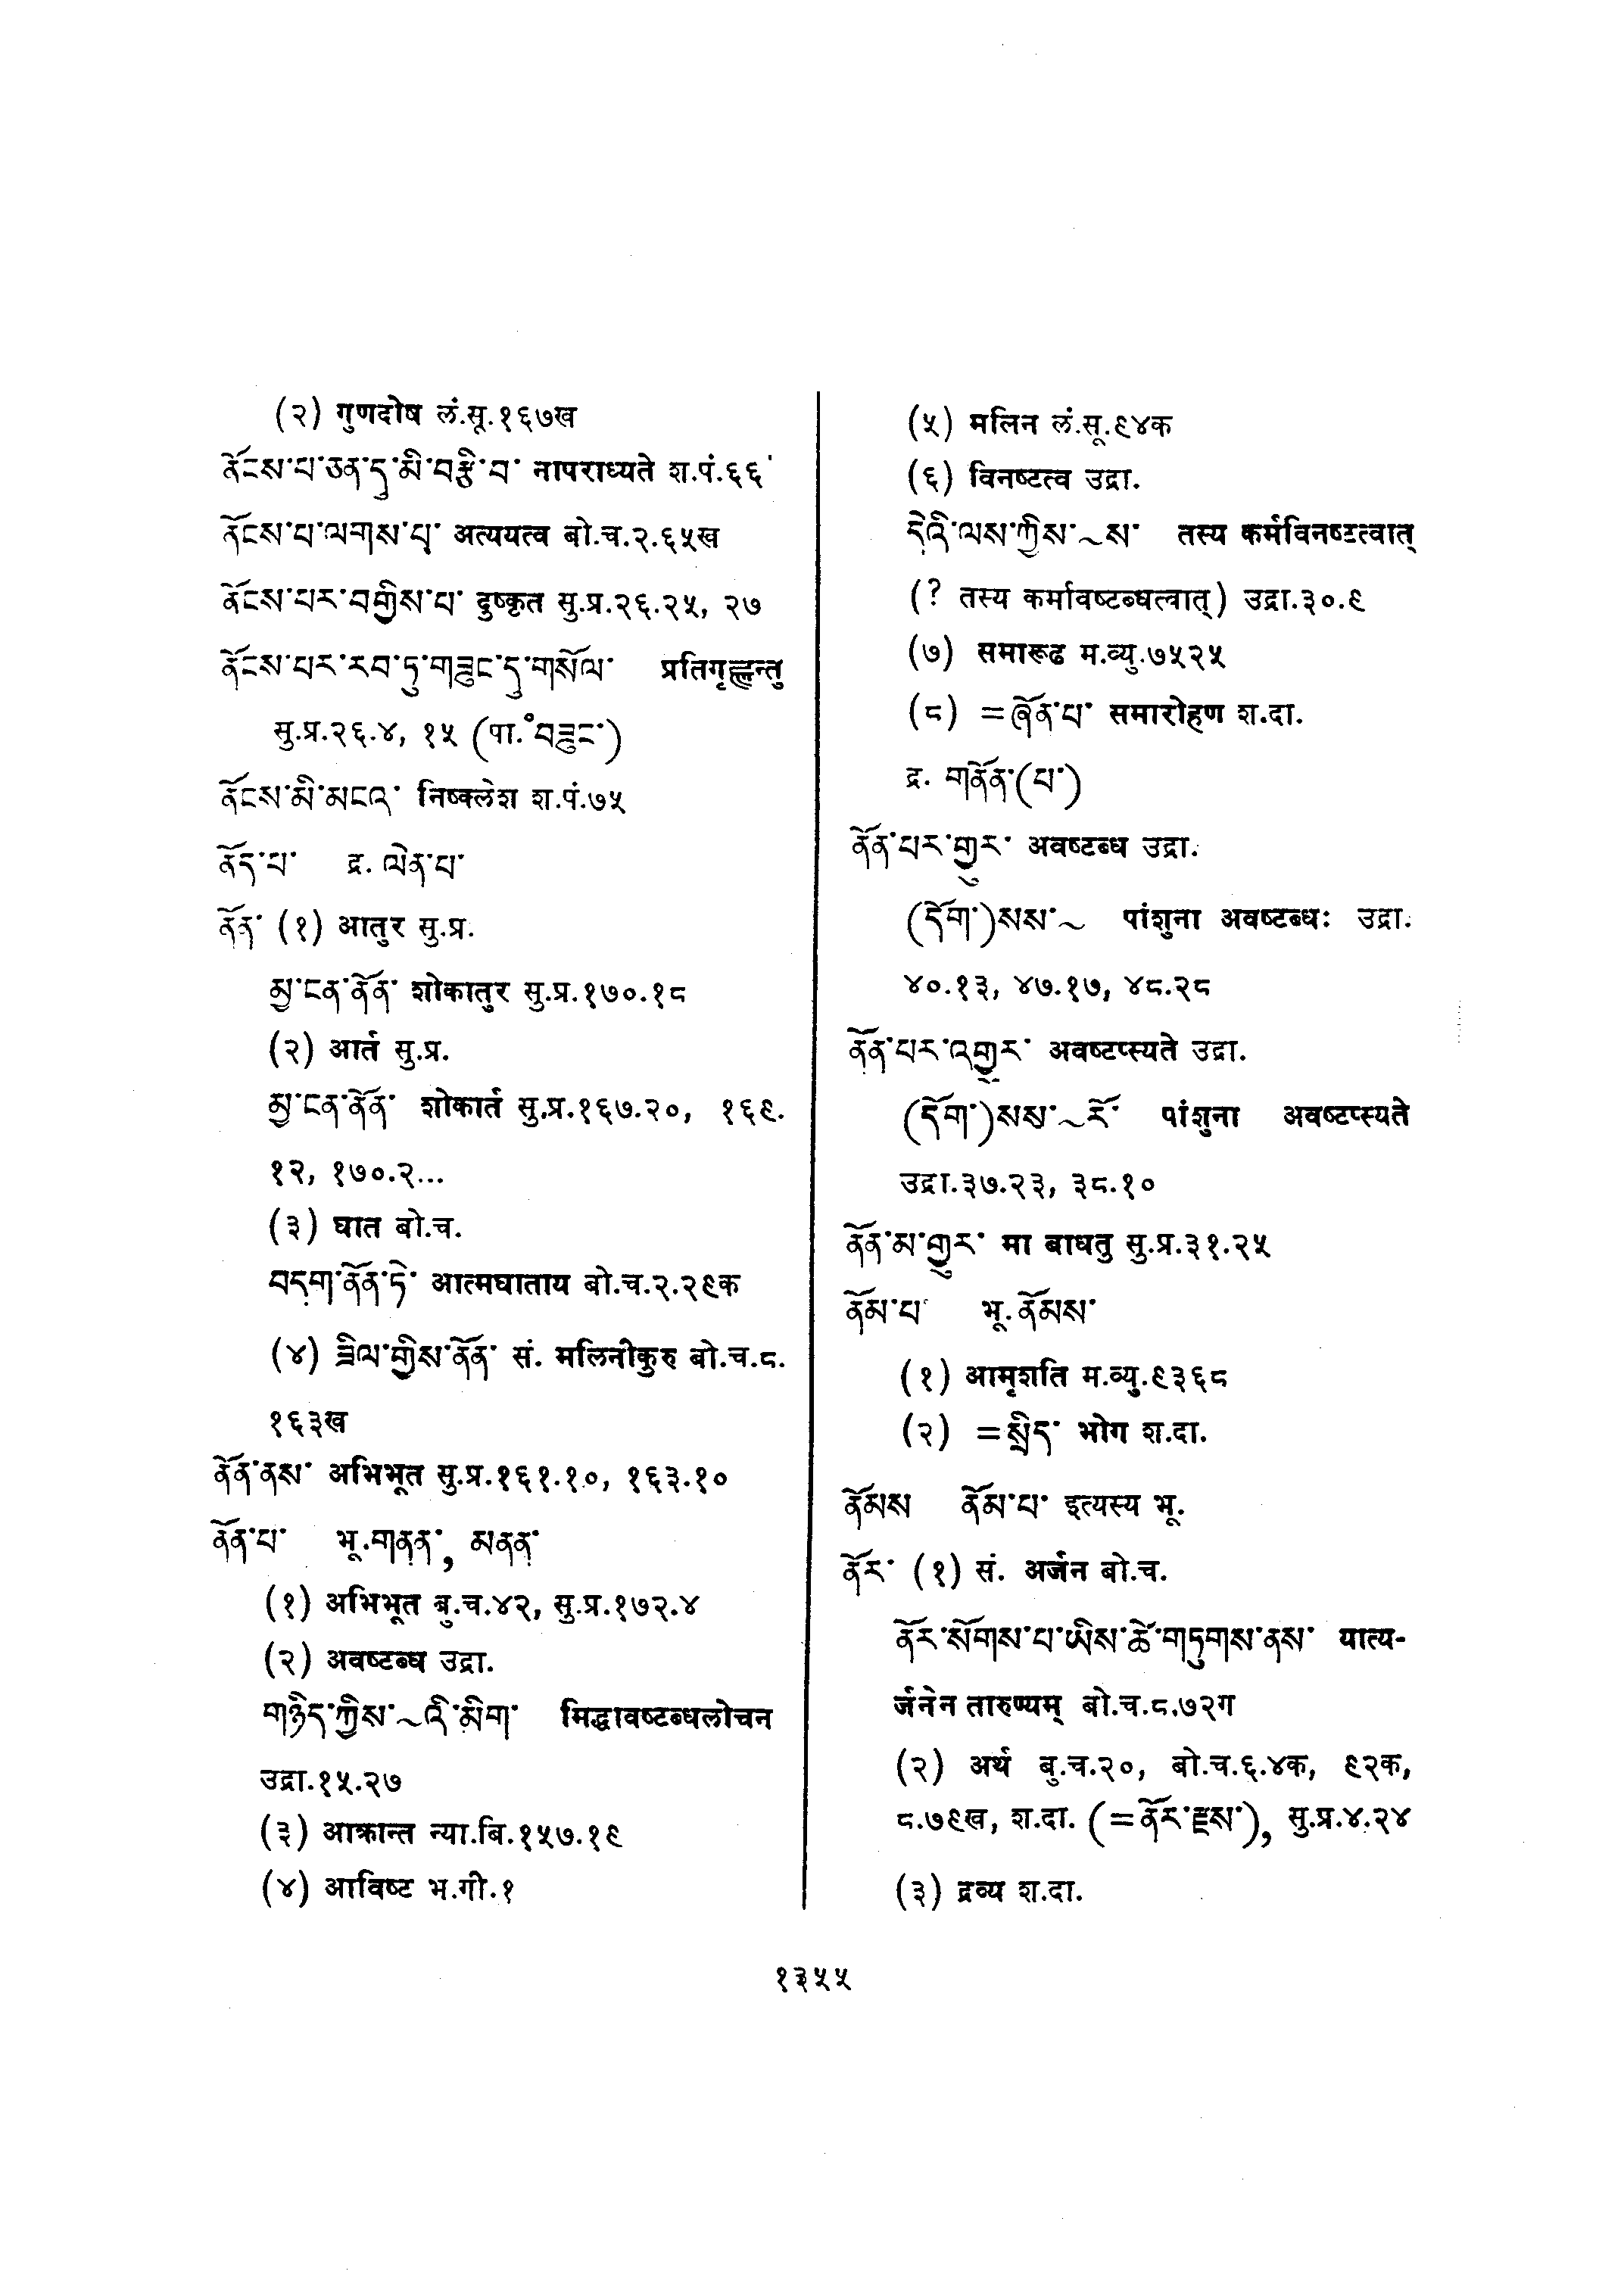 (२) गुणदोष लं.सू.१६७ख
ནོངས་པ་ཅན་དུ་མི་བརྩི་བ་ नापराध्यते श.पं.६६
ནོངས་པ་ལགས་པ་ अत्ययत्व बो.च.२.६५ख
ནོངས་པར་བགྱིས་པ་ दुष्कृत सु.प्र.२६.२५, २७
ནོངས་པར་རབ་ཏུ་གཟུང་དུ་གསོལ་ प्रतिगृह्णन्तु
सु.प्र.२६.४, १५ (पा.°བཟུང་)
ནོངས་མི་མངའ་ निष्क्लेश श.पं.७५
ནོད་པ་ द्र. ལེན་པ་
ནོན་ (१) आतुर सु.प्र.
མྱ་ངན་ནོན་ शोकातुर सु.प्र.१७०.१८
(२) आर्त सु.प्र.
མྱ་ངན་ནོན་ शोकार्त सु.प्र.१६७.२०, १६९.
१२, १७०.२...
(३) घात बो.च.
བདག་ནོན་ཏེ་ आत्मघाताय बो.च.२.२९क
(४) ཟིལ་གྱིས་ནོན་ सं. मलिनीकुरु बो.च.८.
१६३ख
ནོན་ནས་ अभिभूत सु.प्र.१६१.१०, १६३.१०
ནོན་པ་ भू.གནན་, མནན་
(१) अभिभूत बु.च.४२, सु.प्र.१७२.४
(२) अवष्टब्ध उद्रा.
གཉིད་ཀྱིས་~འི་མིག་ मिद्धावष्टब्धलोचन
उद्रा.१५.२७
(३) आक्रान्त न्या.बि.१५७.१९
(४) आविष्ट भ.गी.१
(५) मलिन लं.सू.९४क
(६) विनष्टत्व उद्रा.
དེའི་ལས་ཀྱིས་~ས་ तस्य कर्मविनष्टत्वात्
(? तस्य कर्मावष्टब्धत्वात्) उद्रा.३०.९
(७) समारूढ म.व्यु.७५२५
(८) =ཞོན་པ་ समारोहण श.दा.
द्र. གནོན་(པ་)
ནོན་པར་གྱུར་ अवष्टब्ध उद्रा.
(དོག་)སས་~ पांशुना अवष्टब्धः उद्रा.
४०.१३, ४७.१७, ४८.२८
ནོན་པར་འགྱུར་ अवष्टप्स्यते उद्रा.
(དོག་)སས་~རོ་ पांशुना अवष्टप्स्यते
उद्रा.३७.२३, ३८.१०
ནོན་མ་གྱུར་ मा बाधतु सु.प्र.३१.२५
ནོམ་པ་ भू.ནོམས་
(१) आमृशति म.व्यु.९३६८
(२) =སྲིད་ भोग श.दा.
ནོམས ནོམ་པ་ इत्यस्य भू.
ནོར་ (१) सं. अर्जन बो.च.
ནོར་སོགས་པ་ཡིས་ཚེ་གཏུགས་ནས་ यात्य-
र्जनेन तारुण्यम् बो.च.८.७२ग
(२) अर्थ बु.च.२०, बो.च.६.४क, ९२क,
८.७९ख, श.दा. (=ནོར་རྫས་), सु.प्र.४.२४
(३) द्रव्य श.दा.
१३५५